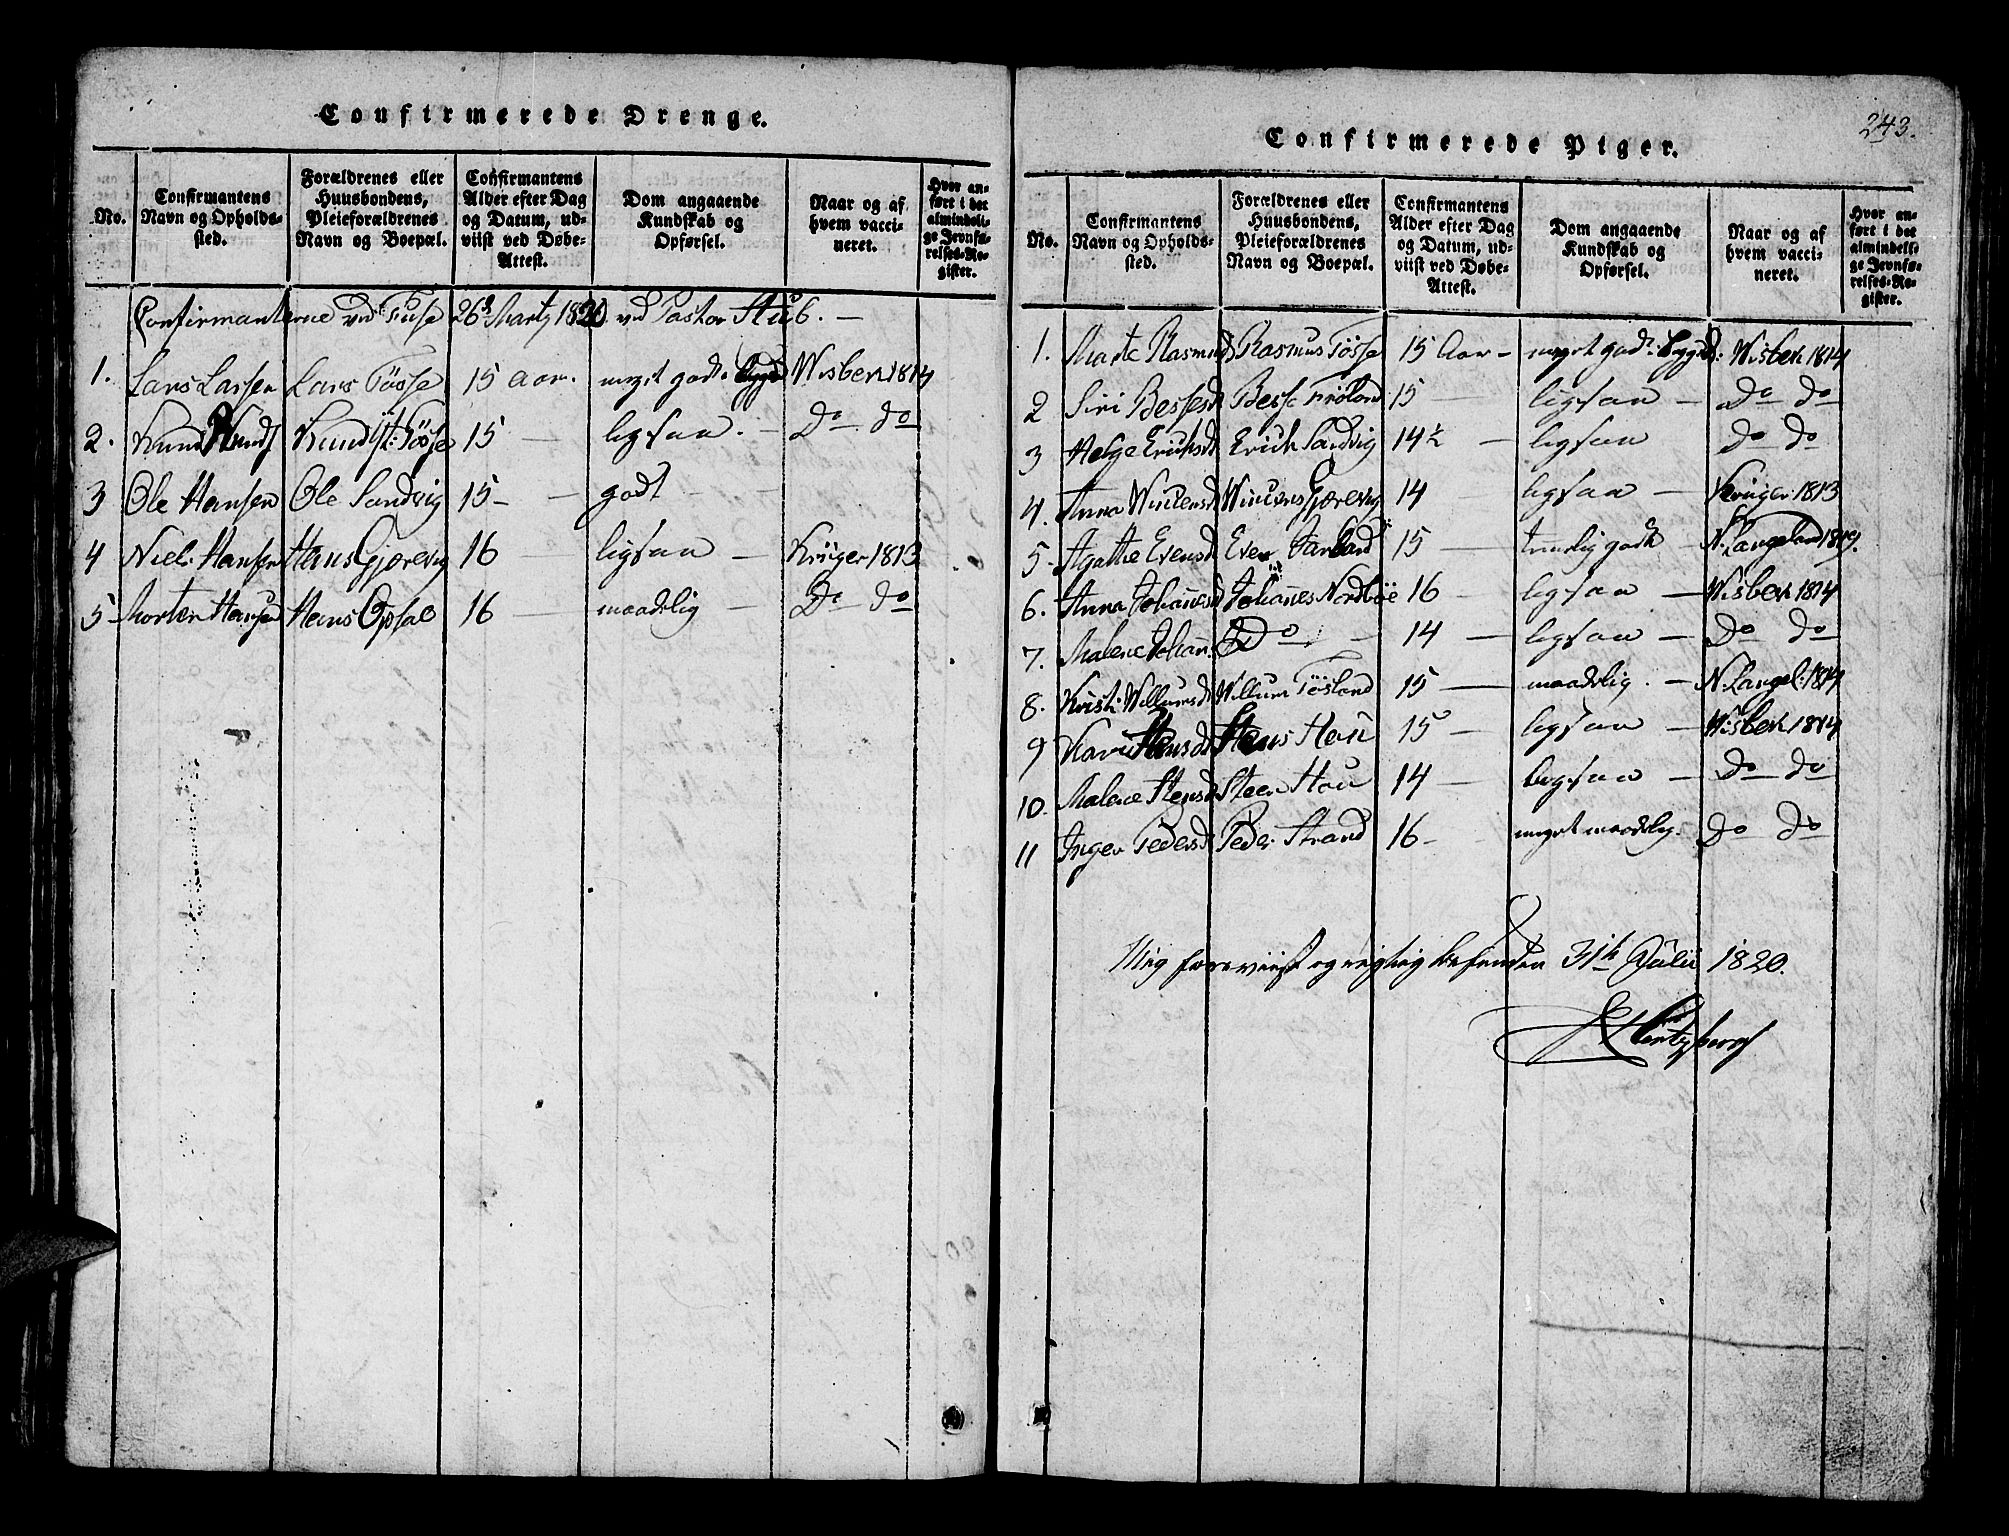 Confirmerede Drenge.
No.
Confirmantens
Navn og Opholds-
sted.
Forældrenes eller
Huusbondens,
Pleieforældrenes
Navn og Boepæl.
Confirmantens
Alder efter Dag
og Datum, ud-
viist ved Døbe-
Attest.
Dom angaaende
Kundskab og
Opførsel.
Naar og af
hvem vacci-
neret.
Hvor an-
ført i det
almindeli-
ge Jevnfø-
relses-Re-
gister.
Confirmanterne ved Fuse 26d Martz 1820 ved Pastor Stub. —
1. Lars Larsen Lars Tøsse 15 aar. meget godt Wisbek 1814
2. Knud Knuds Knud Tøsse 15 — ligsaa. — Do Do
3 Ole Hansen Ole Sandvig 15 — godt — —
4 Niels Hansen Hans Gjørevig 16 — ligsaa — Krüger 1813
5 Morten Hansen Hans Opsal 16 — maadelig — Do Do
243.
Confirmerede Piger.
No.
Confirmantens
Navn og Opholds-
sted.
Forældrenes eller
Huusbondens,
Pleieforældrenes
Navn og Boepæl.
Confirmantens
Alder efter Dag
og Datum, ud-
viist ved Døbe-
Attest.
Dom angaaende
Kundskab og
Opførsel.
Naar og af
hvem vacci-
neret.
Hvor an-
ført i det
almindeli-
ge Jevnfø-
relses-Re-
gister.
1. Marte Rasmusd Rasmus Tøsse 15 Aar — meget godt Wisbek 1814
2 Siri Bessesd Besse Frøland 15 — ligsaa — Do Do
3 Helge Eriksd Erich Sandvig 14½ — ligsaa Do Do
4. Anna Vincensd Vincens Gjørevig 14 ligsaa — Krüger 1813
5 Agathe Evensd Even 15 — temelig godt — N. Langeland 1819.
6. Anna Johanesd Johanes Nordbøe 16 — ligsaa — Wisbek 1814
7. Malene Johan. Do — 14 — ligsaa — Do Do
8. Kristi Willumsd Willum Tøsland 15 — maadelig. — N. Langel. 1814
9 Kari Stensd Stens Hou 15 — ligsaa — Wisbek 1814
10. Malene Stensd Steen Hou 14 — ligsaa — Do Do
11 Inger Pedersd Peder Strand 16 — meget maadelig. Do Do
Mig foreviist og rigtig befunden 31te Julii 1820.
Hertzberg